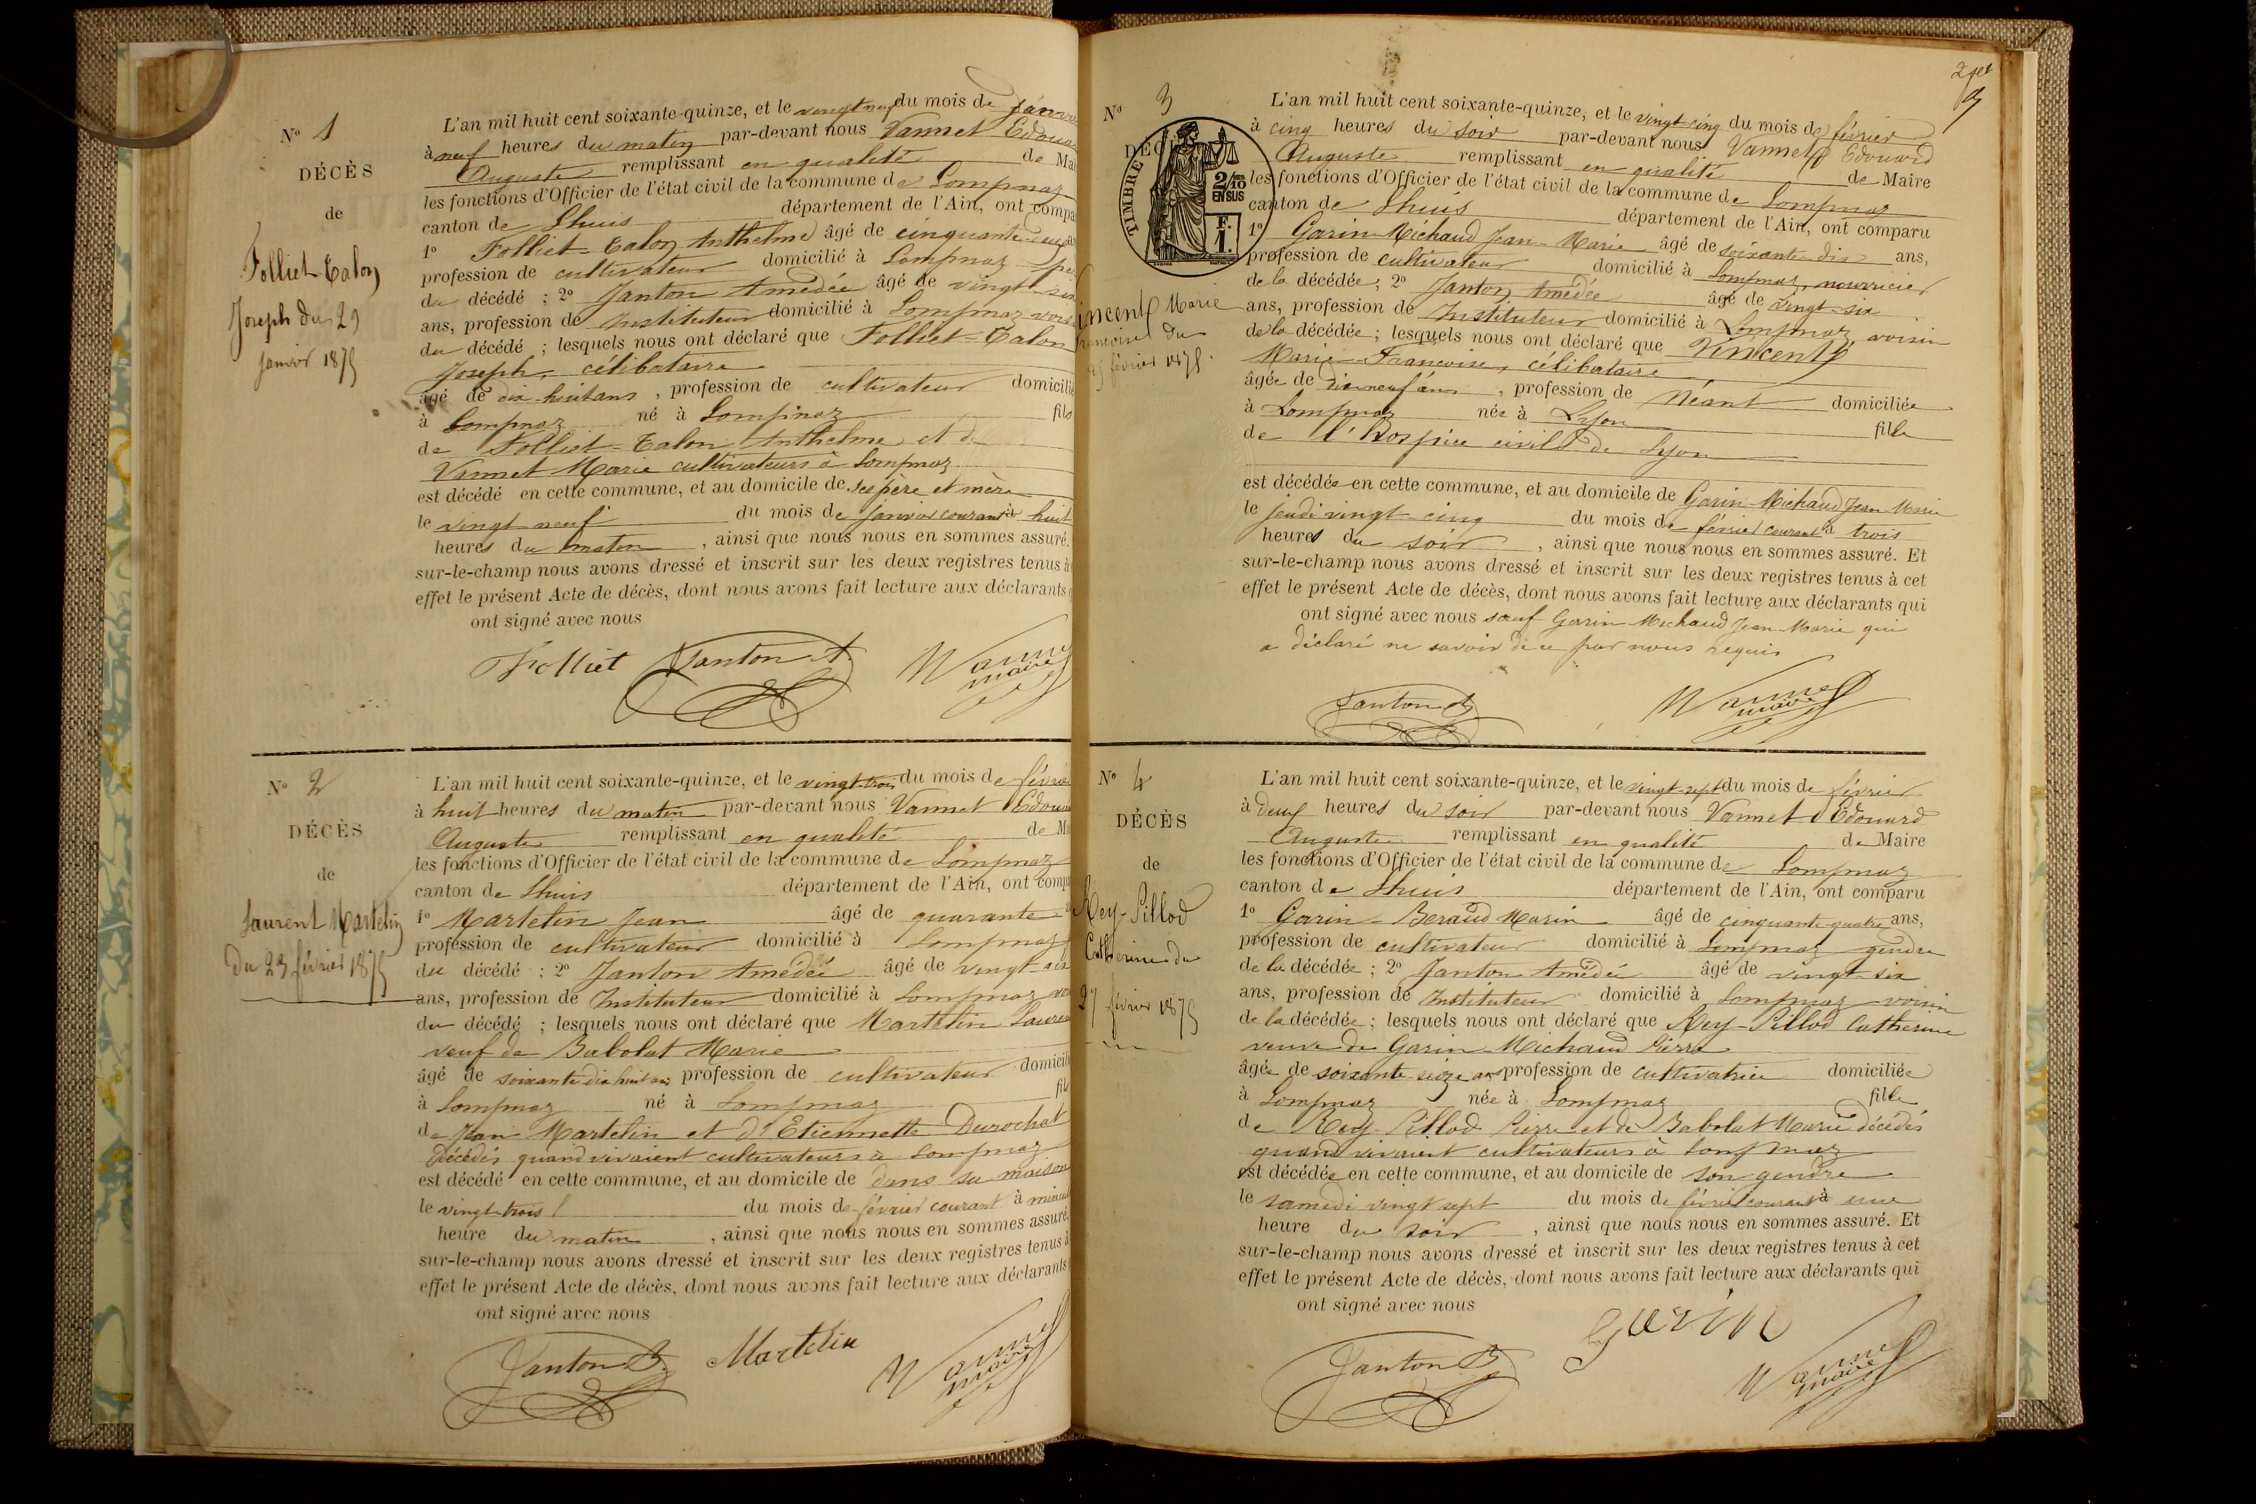 N° 1
DÉCÈS
de
Folliet-Talon
Joseph du 29
janvier 1875
L'an mil huit cent soixante-quinze, et le vingt neuf du mois de janvier
à neuf heures du matin par-devant nous Vannet Edouard
Auguste remplissant en qualité de Mai
les fonctions d'Officier de l'état civil de la commune de Lompnaz
canton de Lhuis département de l'Ain, ont compa
1° Folliet-Talon Anthelme âgé de cinquante
profession de cultivateur domicilié à Lompnaz
du décédé ; 2° Janton Amédée âgé de vingt-six
ans, profession de Instituteur domicilié à Lompnaz
du décédé ; lesquels nous ont déclaré que Folliet=Talon
Joseph, célibataire
âgé de dix-huit ans, profession de cultivateur domicilié
à Lompnaz né à Lompnaz fils
de Folliet=Talon Anthelme et de
Vannet Marie cultivateurs à Lompnaz
est décédé en cette commune, et au domicile de ses père et mère
le vingt neuf du mois de janvier courant à huit
heures du matin, ainsi que nous nous en sommes assuré.
sur-le-champ nous avons dressé et inscrit sur les deux registres tenus à
effet le présent Acte de décès, dont nous avons fait lecture aux déclarants
ont signé avec nous
Folliet Janton A. Vannet
maire
N° 2
DÉCÈS
de
Laurent Martelin
du 23 février 1875
L'an mil huit cent soixante-quinze, et le vingt-trois du mois de février
à huit heures du matin par-devant nous Vannet Edouard
Auguste remplissant en qualité de Ma
les fonctions d'Officier de l'état civil de la commune de Lompnaz
canton de Lhuis département de l'Ain, ont compa
1° Martelin Jean âgé de quarante
profession de cultivateur domicilié à Lompnaz
du décédé ; 2° Janton Amédée âgé de vingt-six
ans, profession de Instituteur domicilié à Lompnaz
du décédé ; lesquels nous ont déclaré que Martelin Laurent
veuf de Babolat Marie
âgé de soixante dix huit ans, profession de cultivateur domicilié
à Lompnaz né à Lompnaz fils
de Jean Martelin et d'Etiennette Durochat
décédés quand vivaient cultivateurs à Lompnaz
est décédé en cette commune, et au domicile de dans sa maison
le vingt-trois du mois de février courant à minuit
heure du matin, ainsi que nous nous en sommes assuré.
sur-le-champ nous avons dressé et inscrit sur les deux registres tenus à
effet le présent Acte de décès, dont nous avons fait lecture aux déclarants
ont signé avec nous
Janton A. Martelin Vannet
maire
3
N° 3
DÉC
TIMBRE
2/10
EN SUS
F.
1.
Vincent Marie
Françoise du
25 février 1875.
L'an mil huit cent soixante-quinze, et le vingt cinq du mois de février
à cinq heures du soir par-devant nous Vannet Edouard
Auguste remplissant en qualité de Maire
les fonctions d'Officier de l'état civil de la commune de Lompnaz
canton de Lhuis département de l'Ain, ont comparu
1° Garin-Michaud Jean-Marie âgé de soixante dix ans,
profession de cultivateur domicilié à Lompnaz, nourricier
de la décédée ; 2° Janton Amédée âgé de vingt-six
ans, profession de Instituteur domicilié à Lompnaz, voisin
de la décédée ; lesquels nous ont déclaré que Vincent
Marie-Françoise, célibataire
âgée de dix neuf ans, profession de Néant domiciliée
à Lompnaz née à Lyon fille
de l'hospice civil de Lyon
est décédée en cette commune, et au domicile de Garin-Michaud Jean-Marie
le jeudi vingt-cinq du mois de février courant à trois
heures du soir, ainsi que nous nous en sommes assuré. Et
sur-le-champ nous avons dressé et inscrit sur les deux registres tenus à cet
effet le présent Acte de décès, dont nous avons fait lecture aux déclarants qui
ont signé avec nous sauf Garin-Michaud Jean-Marie qui
a déclaré ne savoir de ce par nous requis
Janton A. Vannet
maire
N° 4
DÉCÈS
de
Rey-Pillod
Catherine du
27 février 1875
L'an mil huit cent soixante-quinze, et le vingt-sept du mois de février
à deux heures du soir par-devant nous Vannet Edouard
Auguste remplissant en qualité de Maire
les fonctions d'Officier de l'état civil de la commune de Lompnaz
canton de Lhuis département de l'Ain, ont comparu
1° Garin-Beraud Marin âgé de cinquante quatre ans,
profession de cultivateur domicilié à Lompnaz gendre
de la décédée ; 2° Janton Amédée âgé de vingt-six
ans, profession de Instituteur domicilié à Lompnaz voisin
de la décédée ; lesquels nous ont déclaré que Rey-Pillod Catherine
veuve de Garin-Michaud Pierre
âgée de soixante seize ans profession de cultivatrice domiciliée
à Lompnaz née à Lompnaz fille
de Rey-Pillod Pierre et de Babolat Marie décédés
quand vivaient cultivateurs à Lompnaz
est décédée en cette commune, et au domicile de son gendre
le samedi vingt sept du mois de février courant à une
heure du soir, ainsi que nous nous en sommes assuré. Et
sur-le-champ nous avons dressé et inscrit sur les deux registres tenus à cet
effet le présent Acte de décès, dont nous avons fait lecture aux déclarants qui
ont signé avec nous
Janton A. garin Vannet
maire